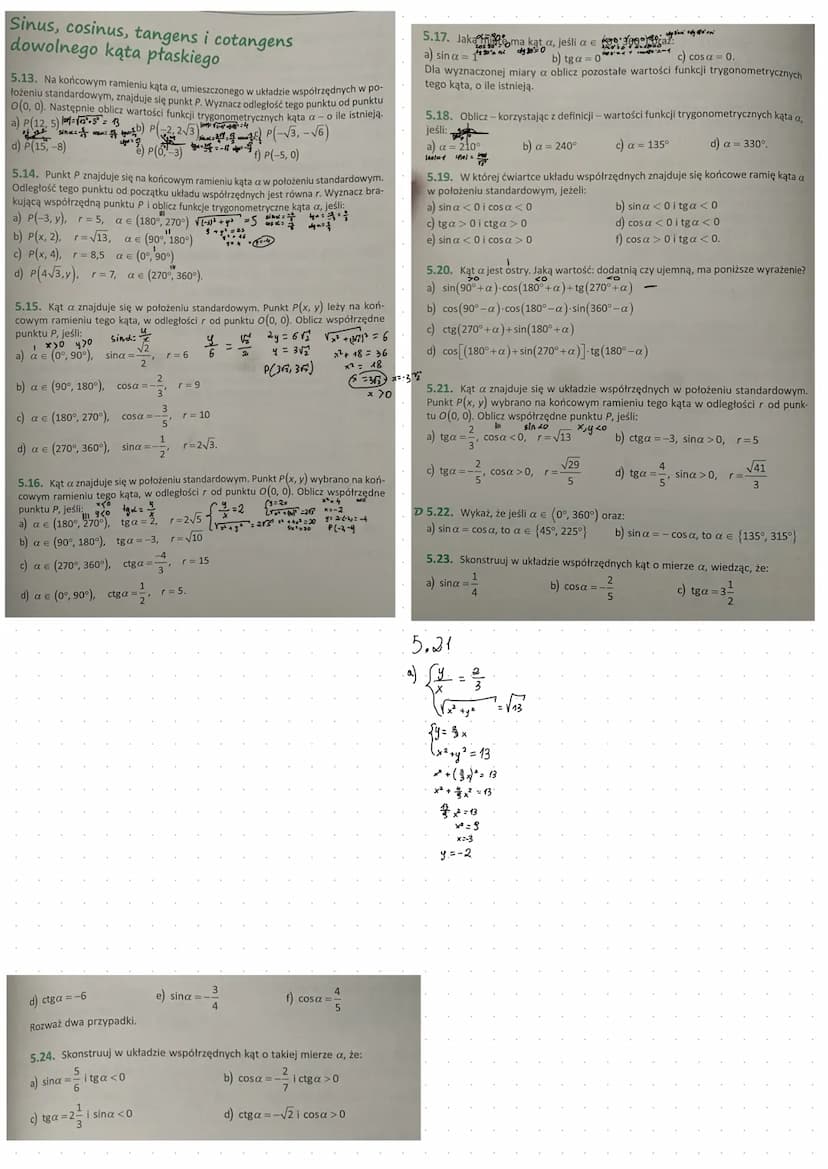 Sinus, cosinus, tangens i cotangens
dowolnego kąta płaskiego
5.13. Na końcowym ramieniu kąta α, umieszczonego w układzie współrzędnych w po-
łożeniu standardowym, znajduje się punkt P. Wyznacz odległość tego punktu od punktu
O(0, 0). Następnie oblicz wartości funkcji trygonometrycznych kąta α – o ile istnieją.
a) P(12, 5) b) P(−2, 2√3) c) P(−√3, −√6)
d) P(15, −8) e) P(0, −3) f) P(−5, 0)
5.14. Punkt P znajduje się na końcowym ramieniu kąta α w położeniu standardowym.
Odległość tego punktu od początku układu współrzędnych jest równa r. Wyznacz bra-
kującą współrzędną punktu P i oblicz funkcje trygonometryczne kąta α, jeśli:
a) P(−3, y), r = 5, α ∈ (180°, 270°)
b) P(x, 2), r = √13, α ∈ (90°, 180°)
c) P(x, 4), r = 8,5 α ∈ (0°, 90°)
d) P(4√3, y), r = 7, α ∈ (270°, 360°).
5.15. Kąt α znajduje się w położeniu standardowym. Punkt P(x, y) leży na koń-
cowym ramieniu tego kąta, w odległości r od punktu O(0, 0). Oblicz współrzędne
punktu P, jeśli:
x>0 y>0 sinα= y/r
a) α ∈ (0°, 90°), sinα = √2/2, r = 6
y/6 = √2/2 2y = 6√2 y = 3√2 P(3√2, 3√2)
√x²+(3√2)² = 6
x² + 18 = 36
x² = 18
x = 3√2 x = −3√2
x > 0
b) α ∈ (90°, 180°), cosα = −2/3, r = 9
c) α ∈ (180°, 270°), cosα = −3/5, r = 10
d) α ∈ (270°, 360°), sinα = −1/2, r = 2√3.
5.16. Kąt α znajduje się w położeniu standardowym. Punkt P(x, y) wybrano na koń-
cowym ramieniu tego kąta, w odległości r od punktu O(0, 0). Oblicz współrzędne
punktu P, jeśli: x<0 y<0 tgα = y/x
a) α ∈ (180°, 270°), tgα = 2, r = 2√5
b) α ∈ (90°, 180°), tgα = −3, r = √10
c) α ∈ (270°, 360°), ctgα = −4/3, r = 15
d) α ∈ (0°, 90°), ctgα = 1/2, r = 5.
5.17. Jaką ma kąt α, jeśli α ∈
a) sin α = 1 b) tg α = 0 c) cos α = 0.
Dla wyznaczonej miary α oblicz pozostałe wartości funkcji trygonometrycznych
tego kąta, o ile istnieją.
5.18. Oblicz – korzystając z definicji – wartości funkcji trygonometrycznych kąta α,
jeśli:
a) α = 210° b) α = 240° c) α = 135° d) α = 330°.
5.19. W której ćwiartce układu współrzędnych znajduje się końcowe ramię kąta α
w położeniu standardowym, jeżeli:
a) sin α < 0 i cos α < 0 b) sin α < 0 i tg α < 0
c) tg α > 0 i ctg α > 0 d) cos α < 0 i tg α < 0
e) sin α < 0 i cos α > 0 f) cos α > 0 i tg α < 0.
5.20. Kąt α jest ostry. Jaką wartość: dodatnią czy ujemną, ma poniższe wyrażenie?
>0 <0 <0
a) sin(90° + α) · cos(180° + α) + tg(270° + α) −
b) cos(90° − α) · cos(180° − α) · sin(360° − α)
c) ctg(270° + α) + sin(180° + α)
d) cos[(180° + α) + sin(270° + α)] · tg(180° − α)
5.21. Kąt α znajduje się w układzie współrzędnych w położeniu standardowym.
Punkt P(x, y) wybrano na końcowym ramieniu tego kąta w odległości r od punk-
tu O(0, 0). Oblicz współrzędne punktu P, jeśli:
III sin<0 x,y<0
a) tgα = 2/3, cosα < 0, r = √13 b) ctgα = −3, sinα > 0, r = 5
c) tgα = −2/5, cosα > 0, r = √29/5 d) tgα = 4/5, sinα > 0, r = √41/3
D 5.22. Wykaż, że jeśli α ∈ ⟨0°, 360°) oraz:
a) sin α = cos α, to α ∈ {45°, 225°} b) sin α = − cos α, to α ∈ {135°, 315°}
5.23. Skonstruuj w układzie współrzędnych kąt o mierze α, wiedząc, że:
a) sinα = 1/4 b) cosα = −2/5 c) tgα = 3 1/2
5.21
a) { y/x = 2/3
√x² + y² = √13
{ y = 2/3 x
x² + y² = 13
x² + (2/3 x)² = 13
x² + 4/9 x² = 13
13/9 x² = 13
x² = 9
x = −3
y = −2
d) ctgα = −6 e) sinα = −3/4 f) cosα = 4/5
Rozważ dwa przypadki.
5.24. Skonstruuj w układzie współrzędnych kąt o takiej mierze α, że:
a) sinα = 5/6 i tgα < 0 b) cosα = −2/7 i ctgα > 0
c) tgα = 2 1/3 i sinα < 0 d) ctgα = −√2 i cosα > 0